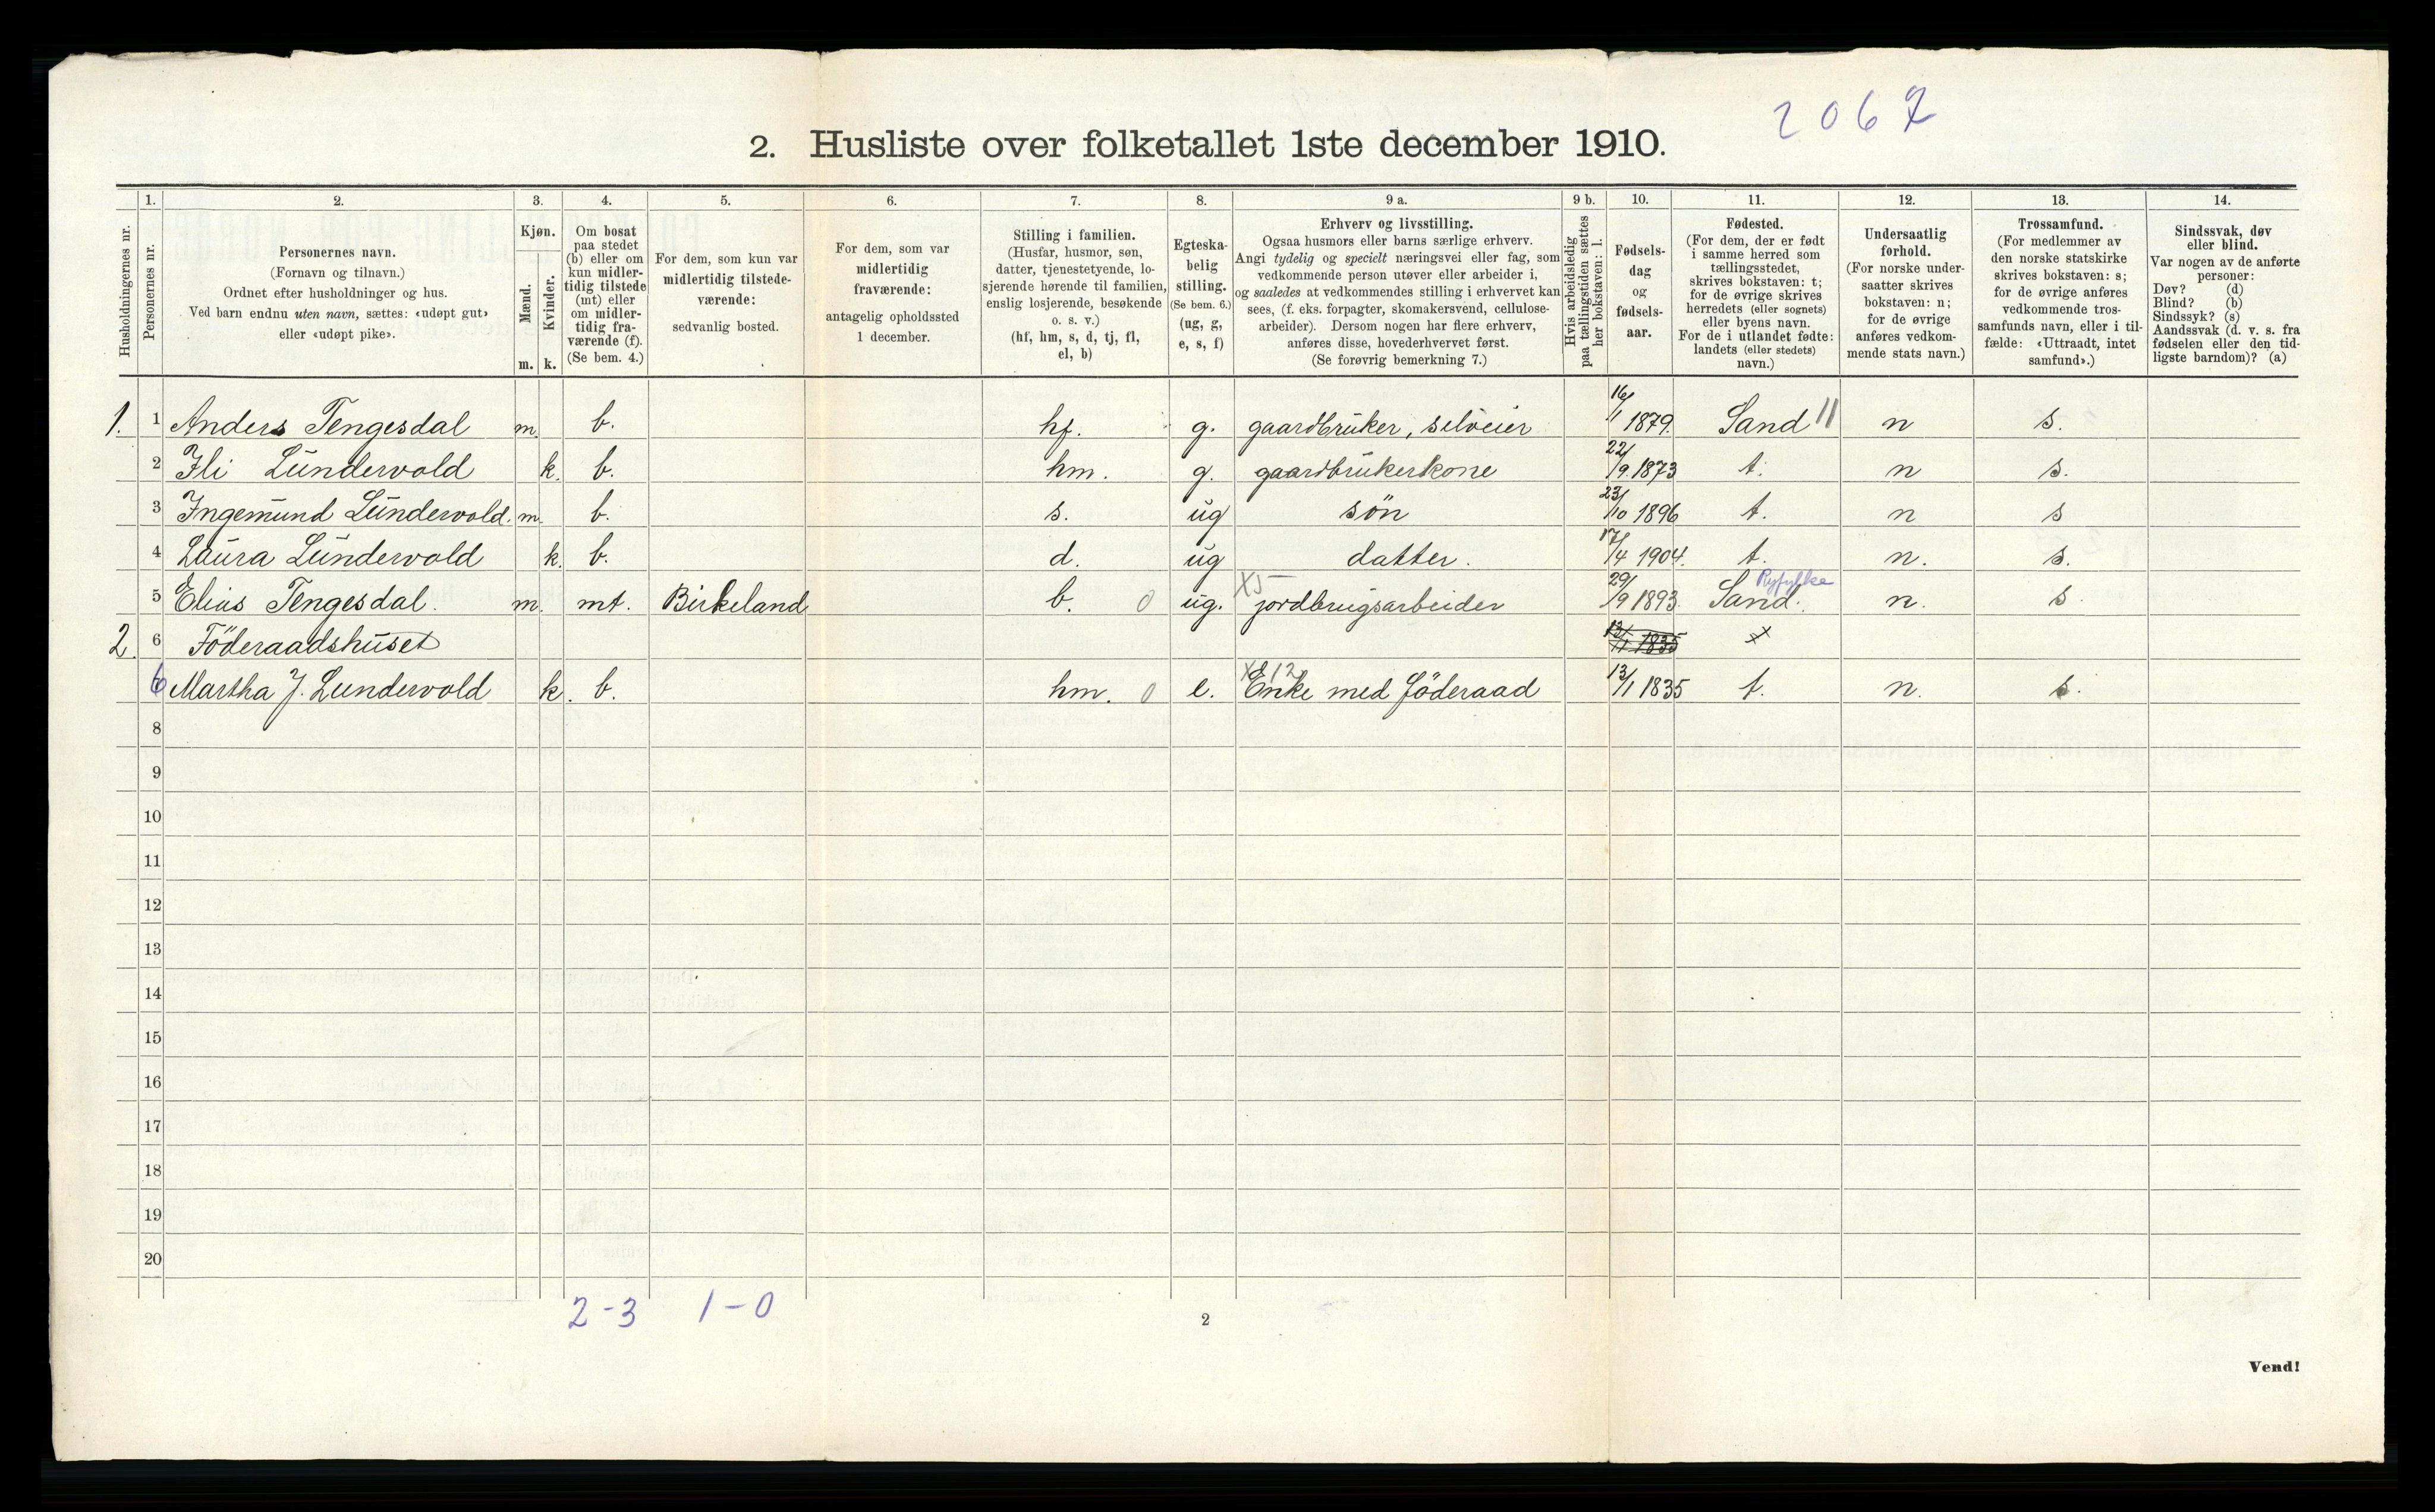 2067
2. Husliste over folketallet 1ste december 1910.
1. 2. 3. 4. 5. 6. 7. 8. 9 a. 9 b. 10. 11. 12. 13. 14.
Husholdningernes nr.
Personernes nr.
Personernes navn.
(Fornavn og tilnavn.)
Ordnet efter husholdninger og hus.
Ved barn endnu uten navn, sættes: «udøpt gut»
eller «udøpt pike».
Kjøn.
Mænd.
Kvinder.
m. k.
Om bosat
paa stedet
(b) eller om
kun midler-
tidig tilstede
(mt) eller
om midler-
tidig fra-
værende (f).
(Se bem. 4.)
For dem, som kun var
midlertidig tilstede-
værende:
sedvanlig bosted.
For dem, som var
midlertidig
fraværende:
antagelig opholdssted
1 december.
Stilling i familien.
(Husfar, husmor, søn,
datter, tjenestetyende, lo-
sjerende hørende til familien,
enslig losjerende, besøkende
o. s. v.)
(hf, hm, s, d, tj, fl,
el, b)
Egteska-
belig
stilling.
(Se bem. 6.)
(ug, g,
e, s, f)
Erhverv og livsstilling.
Ogsaa husmors eller barns særlige erhverv.
Angi tydelig og specielt næringsvei eller fag, som
vedkommende person utøver eller arbeider i,
og saaledes at vedkommendes stilling i erhvervet kan
sees, (f. eks. forpagter, skomakersvend, cellulose-
arbeider). Dersom nogen har flere erhverv,
anføres disse, hovederhvervet først.
(Se forøvrig bemerkning 7.)
Hvis arbeidsledig
paa tællingstiden sættes
her bokstaven: l.
Fødsels-
dag
og
fødsels-
aar.
Fødested.
(For dem, der er født
i samme herred som
tællingsstedet,
skrives bokstaven: t;
for de øvrige skrives
herredets (eller sognets)
eller byens navn.
For de i utlandet fødte:
landets (eller stedets)
navn.)
Undersaatlig
forhold.
(For norske under-
saatter skrives
bokstaven: n;
for de øvrige
anføres vedkom-
mende stats navn.)
Trossamfund.
(For medlemmer av
den norske statskirke
skrives bokstaven: s;
for de øvrige anføres
vedkommende tros-
samfunds navn, eller i til-
fælde: «Uttraadt, intet
samfund».)
Sindssvak, døv
eller blind.
Var nogen av de anførte
personer:
Døv? (d)
Blind? (b)
Sindssyk? (s)
Aandssvak (d. v. s. fra
fødselen eller den tid-
ligste barndom)? (a)
1. 1 Anders Tengesdal m. b. hf. g. gaardbruker, selveier 16/1 1879. Sand 11 n s.
2 Ili Lundervold k. b. hm. g. gaardbrukerkone 22/9 1873 t. n s.
3 Ingemund Lundervold. m. b. s. ug søn 23/10 1896 t. n s
4 Laura Lundervold k. b. d. ug datter. 17/4 1904. t. n. s.
Ryfylke
5 Elias Tengesdal. m. mt. Birkeland b. 0 ug. X5 jordbrugsarbeider 29/9 1893. Sand. n. s
2. 6 Föderaadshuset 13/1 1835
6 Martha J. Lundervold k. b. hm. 0 e. X 12 Enke med föderaad 13/1 1835 t. n. s.
8
9
10
11
12
13
14
15
16
17
18
19
20
2-3 1-0
2
Vend!